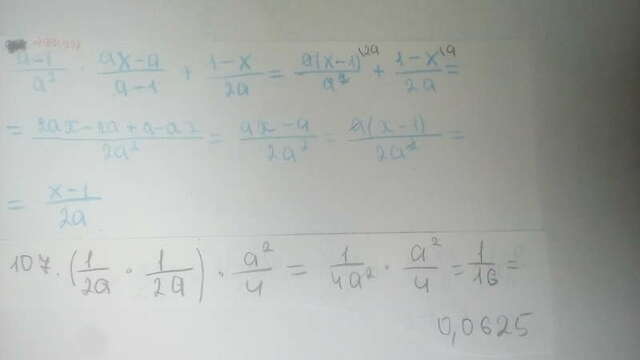 (a-1)/a² · (ax-a)/(a-1) + (1-x)/2a = a(x-1)\2a/a² + (1-x)\a/2a =
= (2ax-2a+a-ax)/2a² = (ax-a)/2a² = a(x-1)/2a² =
= (x-1)/2a
107. (1/2a · 1/2a) · a²/4 = 1/4a² · a²/4 = 1/16 =
0,0625